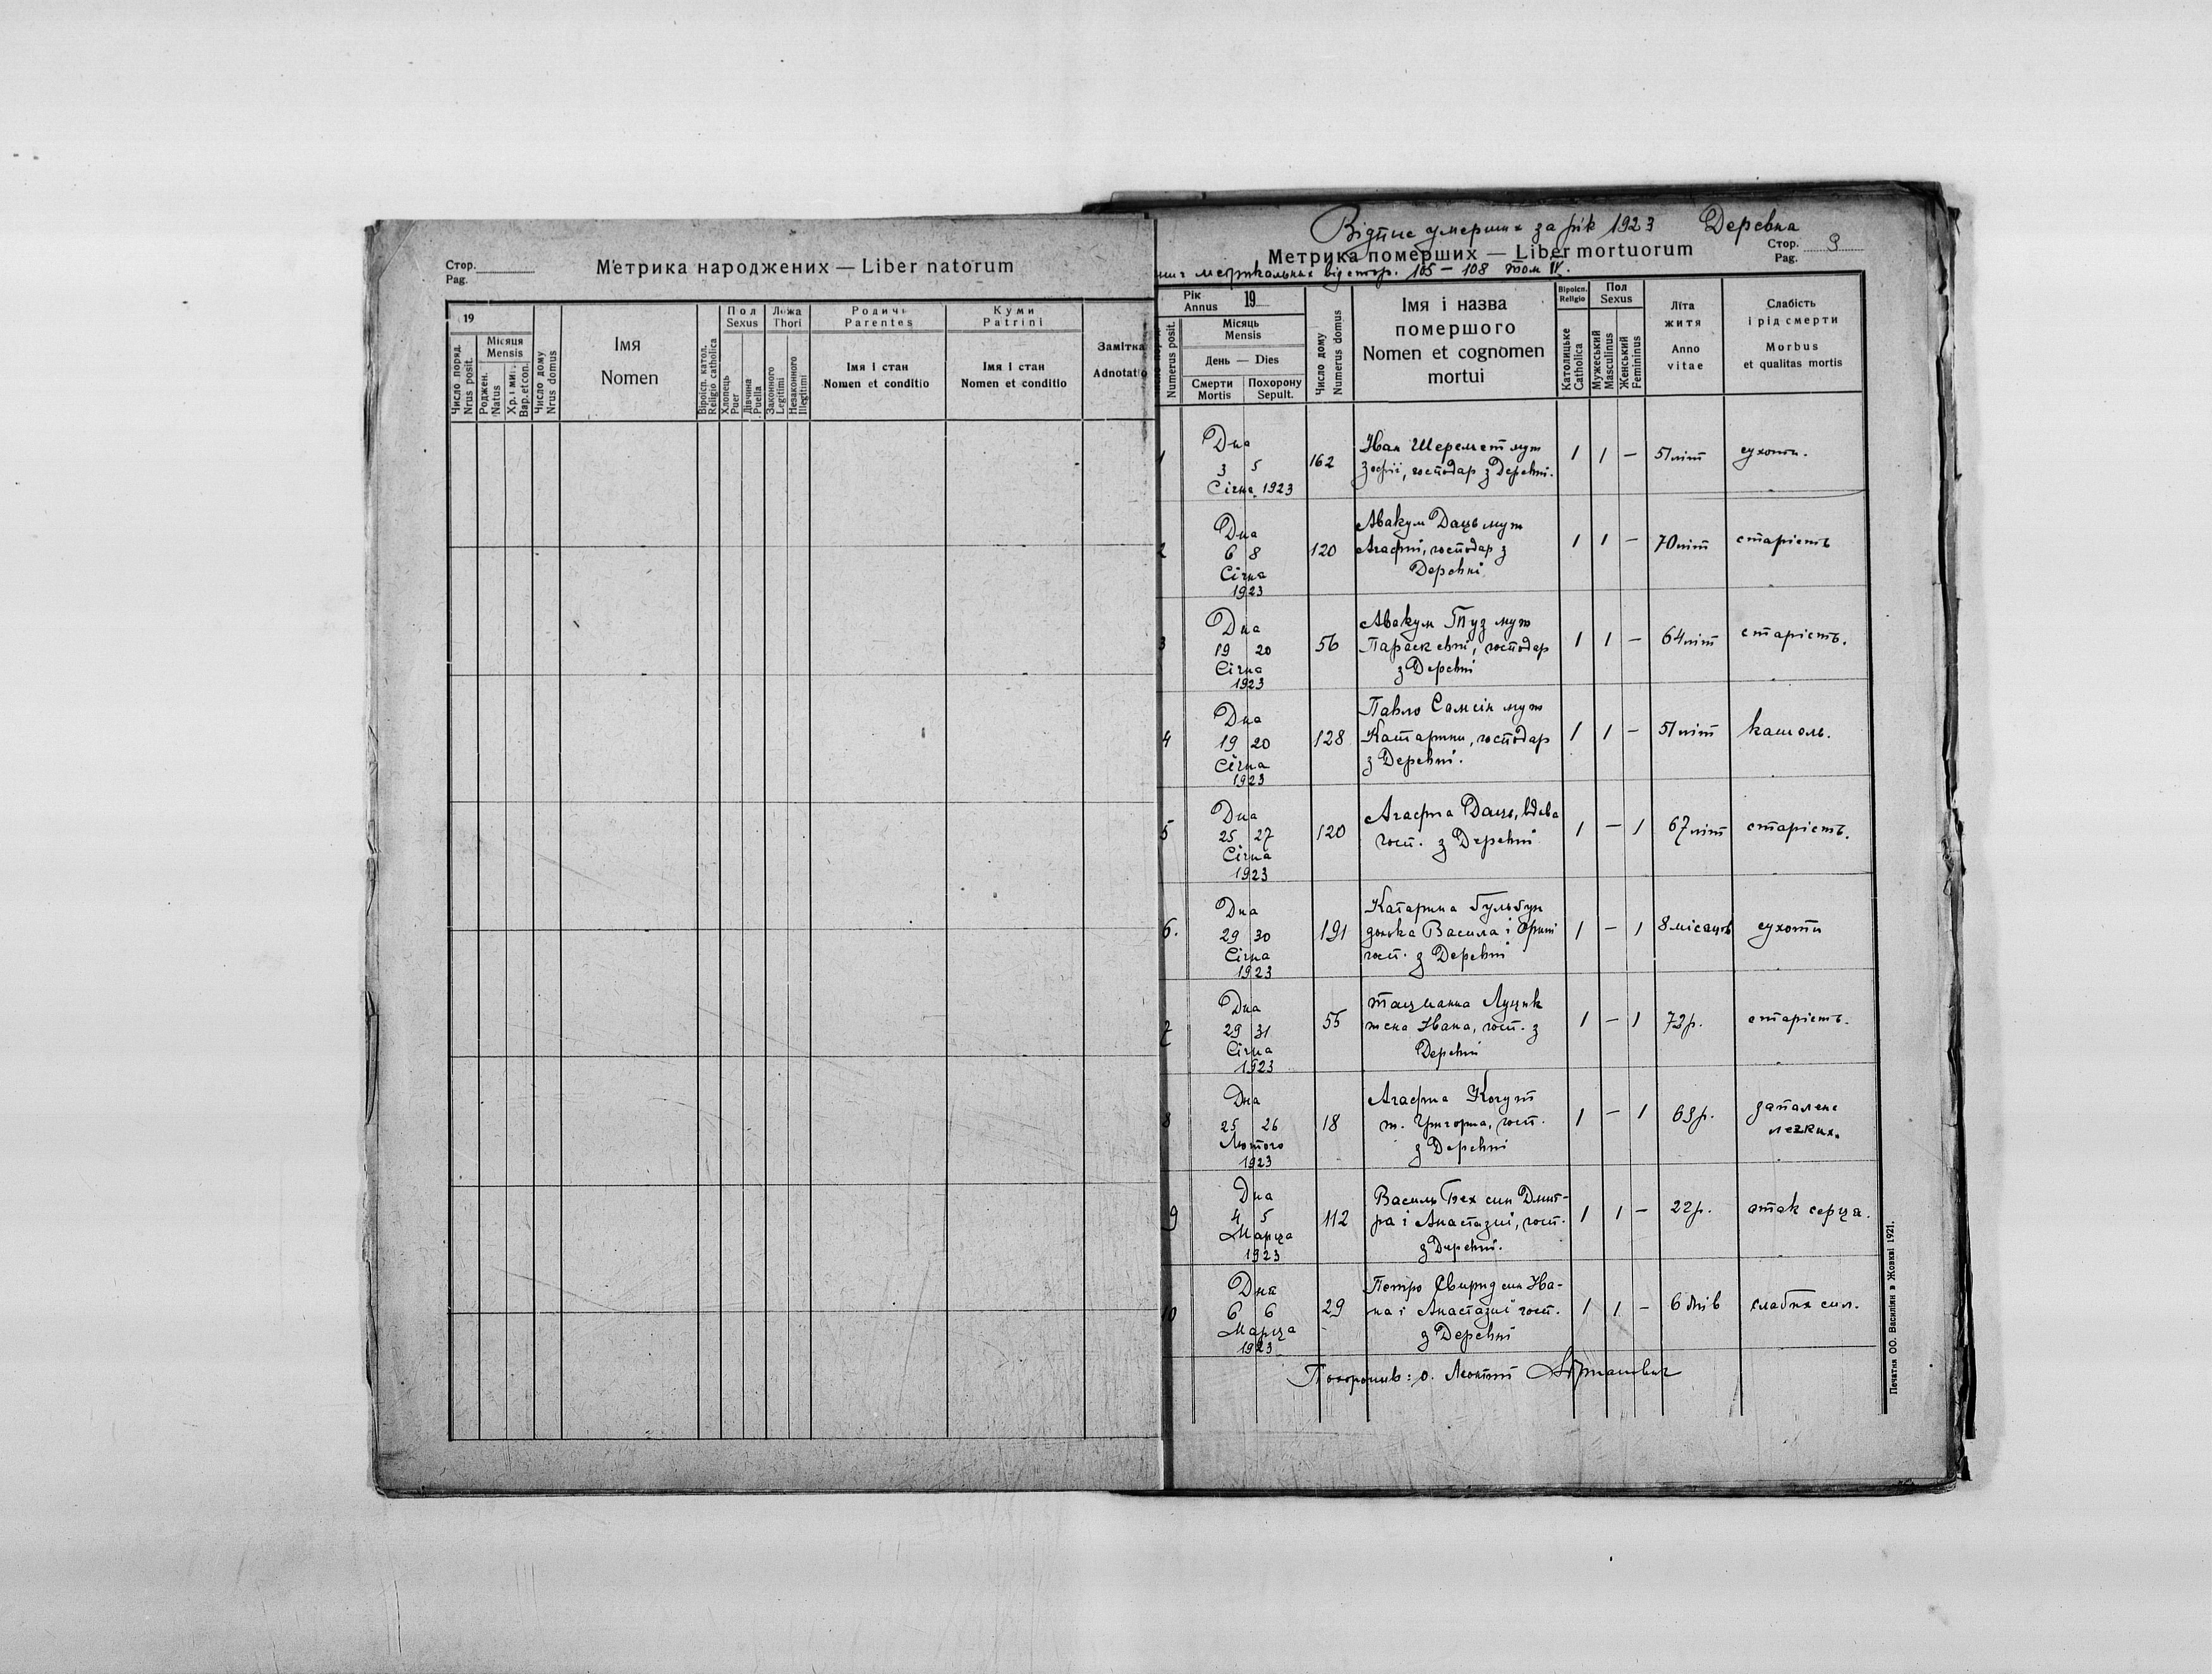 Стор.
Pag.
Метрика народжених — Liber natorum
19
Число поряд.
Nrus posit.
Місяця
Mensis
Роджен.
Natus
Хр. і мир.
Bap. et con.
Число дому
Nrus domus
Імя
Nomen
Віроісп. катол.
Religio catholica
Пол
Sexus
Хлопець
Puer
Дівчина
Puella
Ложа
Thori
Законного
Legitimi
Незаконного
Illegitimi
Родичі
Parentes
Імя і стан
Nomen et conditio
Куми
Patrini
Імя і стан
Nomen et conditio
Замітка
Adnotatio
Відпис умерших за рік 1923 Деревня
Метрика померших — Liber mortuorum
Стор.
Pag. 9
метрикальних від стор. 105 — 108 том IV.
Рік
Annus 19
Numerus posit.
Місяць
Mensis
День — Dies
Смерти
Mortis
Похорону
Sepult.
Число дому
Numerus domus
Імя і назва
помершого
Nomen et cognomen
mortui
Віроісп.
Religio
Католицьке
Catholica
Пол
Sexus
Мужеський
Masculinus
Женський
Femininus
Літа
житя
Anno
vitae
Слабість
і рід смерти
Morbus
et qualitas mortis
1 Дня 3 5 Січня 1923 162 Іван Шеремет муж
Зофії, господар з Деревні. 1 1 — 51 літ сухоти.
2 Дня 6 8 Січня 1923 120 Авакум Даць муж
Агафії, господар з
Деревні 1 1 — 70 літ старість
3 Дня 19 20 Січня 1923 56 Авакум Туз муж
Параскевії, господар
з Деревні 1 1 — 64 літ старість.
4 Дня 19 20 Січня 1923 128 Павло Самсін муж
Катарини, господар
з Деревні. 1 1 — 51 літ кашель.
5 Дня 25 27 Січня 1923 120 Агафія Даць, вдова
госп. з Деревні 1 — 1 67 літ старість.
6. Дня 29 30 Січня 1923 191 Катарина
донька Василя і
госп. з Деревні 1 — 1 8 місяців сухоти
7 Дня 29 31 Січня 1923 55 Луцик
жена Івана, госп. з
Деревні 1 — 1 73 р. старість.
8 Дня 25 26 Лютого 1923 18 Агафія Когут
ж. Григорія, госп.
з Деревні 1 — 1 63 р. запалене
легких.
9 Дня 4 5 Марця 1923 112 Василь син Дмит-
ра і Анастазиї, госп.
з Деревні. 1 1 — 22 р. атак серця.
10 Дня 6 6 Марця 1923 29 Петро Свирид син Іва-
на і Анастазиї госп.
з Деревні 1 1 — 6 днів слабих сил.
Похоронив: о. Леонтій
Печатня ОО. Василіян в Жовкві 1921.